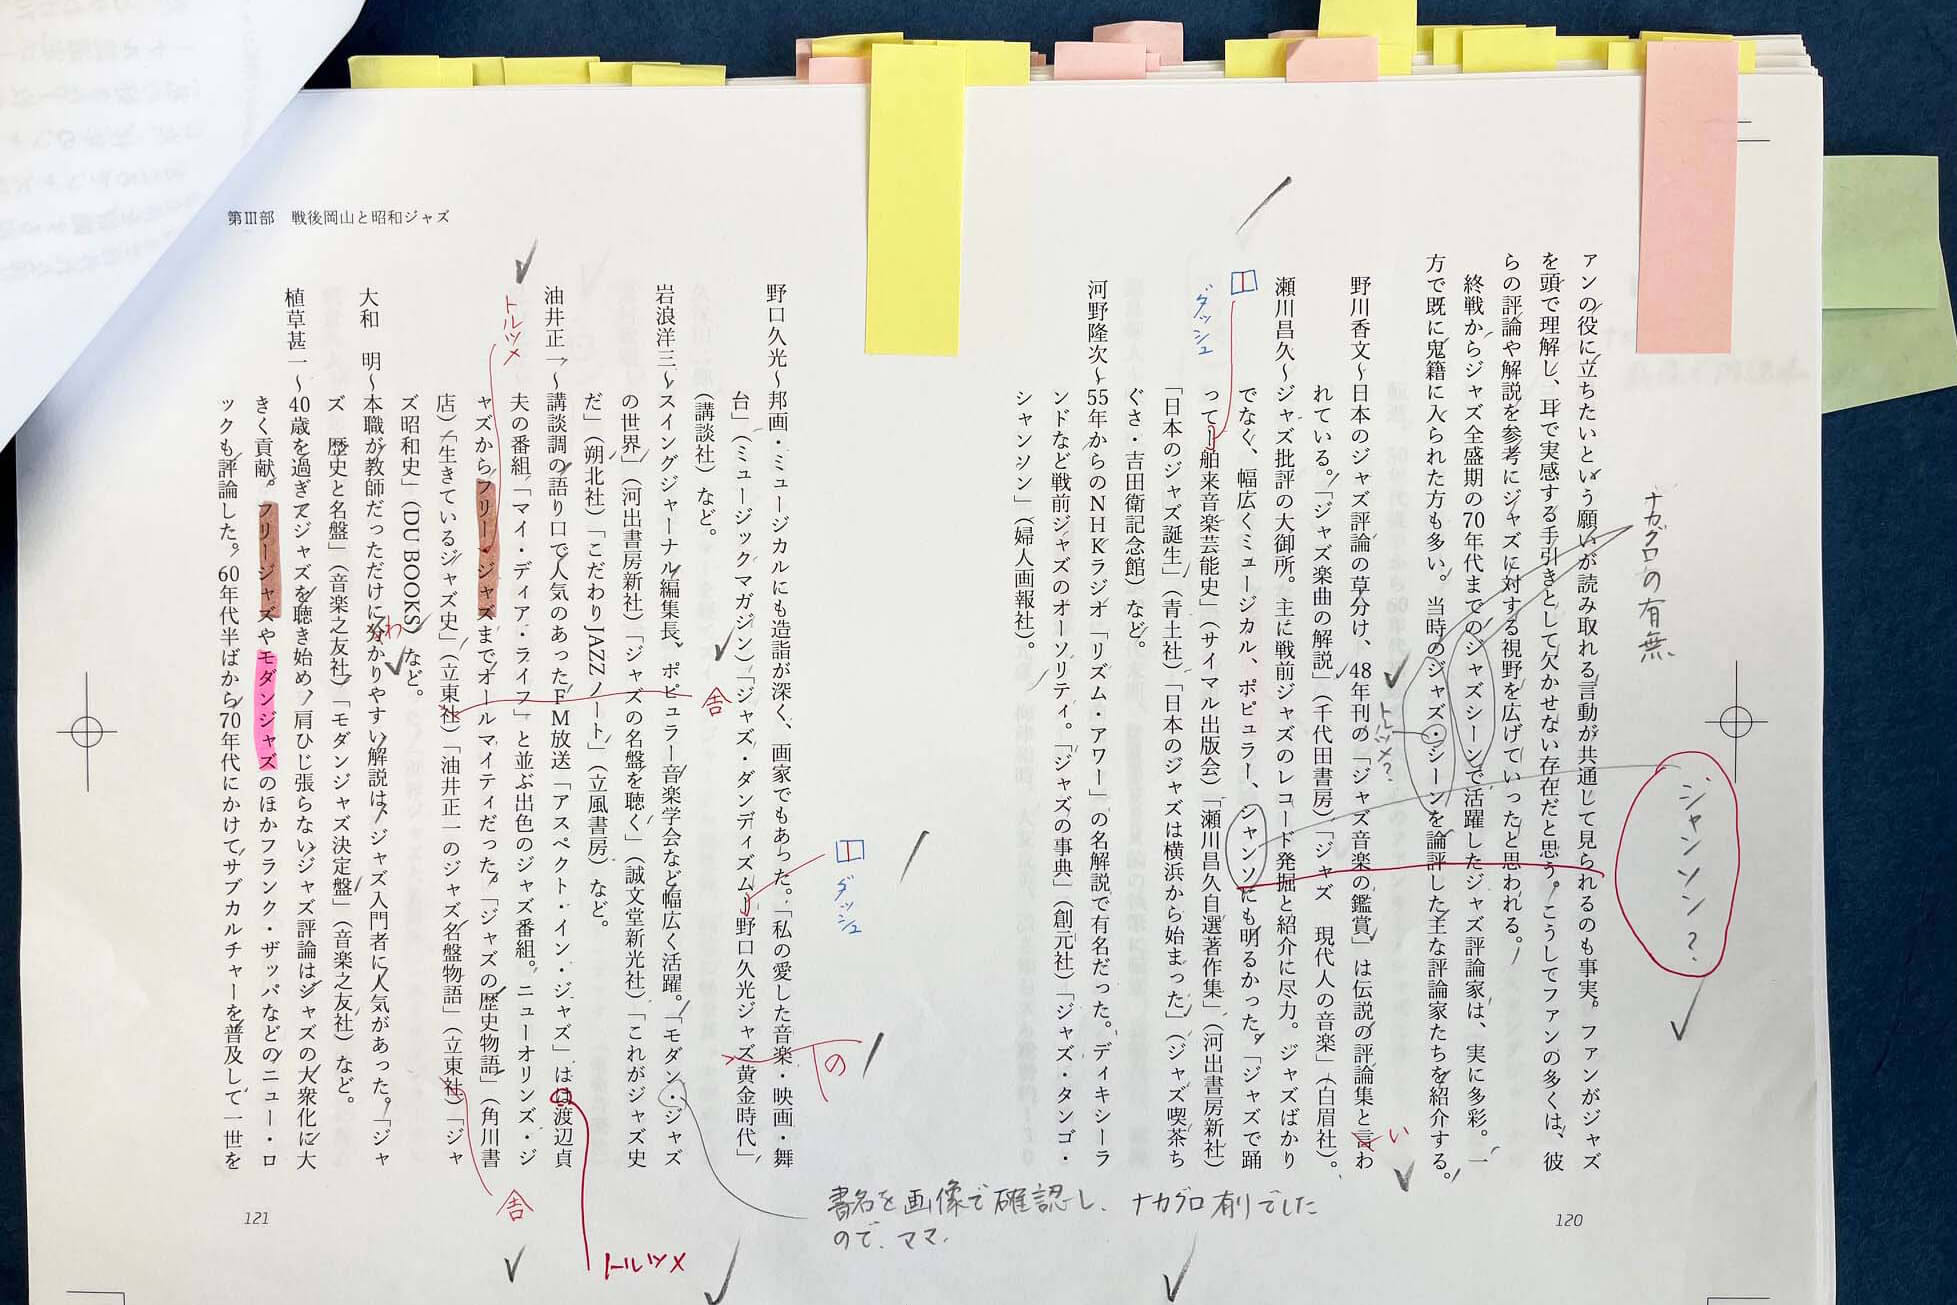 アンの役に立ちたいという願いが読み取れる言動が共通して見られるのも事実。ファンがジャズ
を頭で理解し、耳で実感する手引きとして欠かせない存在だと思う。こうしてファンの多くは、彼
らの評論や解説を参考にジャズに対する視野を広げていったと思われる。
終戦からジャズ全盛期の70年代までのジャズシーンで活躍したジャズ評論家は、実に多彩。一
方で既に鬼籍に入られた方も多い。当時のジャズ・シーンを論評した主な評論家たちを紹介する。
野川香文〜日本のジャズ評論の草分け、48年刊の「ジャズ音楽の鑑賞」は伝説の評論集と言わ
れている。「ジャズ楽曲の解説」（千代田書房）「ジャズ　現代人の音楽」（白眉社）。
瀬川昌久〜ジャズ批評の大御所。主に戦前ジャズのレコード発掘と紹介に尽力。ジャズばかり
でなく、幅広くミュージカル、ポピュラー、シャンソにも明るかった。「ジャズで踊
って 舶来音楽芸能史」（サイマル出版会）「瀬川昌久自選著作集」（河出書房新社）
「日本のジャズ誕生」（青土社）「日本のジャズは横浜から始まった」（ジャズ喫茶ち
ぐさ・吉田衛記念館）など。
河野隆次〜55年からのNHKラジオ「リズム・アワー」の名解説で有名だった。ディキシーラ
ンドなど戦前ジャズのオーソリティ。「ジャズの事典」（創元社）「ジャズ・タンゴ・
シャンソン」（婦人画報社）。
120
ナカグロの有無
シャンソン？
トルツメ？
い
ダッシュ
第III部　戦後岡山と昭和ジャズ
野口久光〜邦画・ミュージカルにも造詣が深く、画家でもあった。「私の愛した音楽・映画・舞
台」（ミュージックマガジン）「ジャズ・ダンディズム 野口久光ジャズ黄金時代」
（講談社）など。
岩浪洋三〜スイングジャーナル編集長、ポピュラー音楽学会など幅広く活躍。「モダン・ジャズ
の世界」（河出書房新社）「ジャズの名盤を聴く」（誠文堂新光社）「これがジャズ史
だ」（朔北社）「こだわりJAZZノート」（立風書房）など。
油井正一〜講談調の語り口で人気のあったFM放送「アスペクト・イン・ジャズ」はは渡辺貞
夫の番組「マイ・ディア・ライフ」と並ぶ出色のジャズ番組。ニューオリンズ・ジ
ャズからフリー・ジャズまでオールマイティだった。「ジャズの歴史物語」（角川書
店）「生きているジャズ史」（立東社）「油井正一のジャズ名盤物語」（立東社）「ジャ
ズ昭和史」（DU BOOKS）など。
大和　明〜本職が教師だっただけに分かりやすい解説は、ジャズ入門者に人気があった。「ジャ
ズ　歴史と名盤」（音楽之友社）「モダンジャズ決定盤」（音楽之友社）など。
植草甚一〜40歳を過ぎてジャズを聴き始め、肩ひじ張らないジャズ評論はジャズの大衆化に大
きく貢献。フリージャズやモダンジャズのほかフランク・ザッパなどのニュー・ロ
ックも評論した。60年代半ばから70年代にかけてサブカルチャーを普及して一世を
121
ダッシュ
の
舎
トルツメ
わ
舎
トルツメ
書名を画像で確認し、ナカグロ有りでした
ので、ママ、